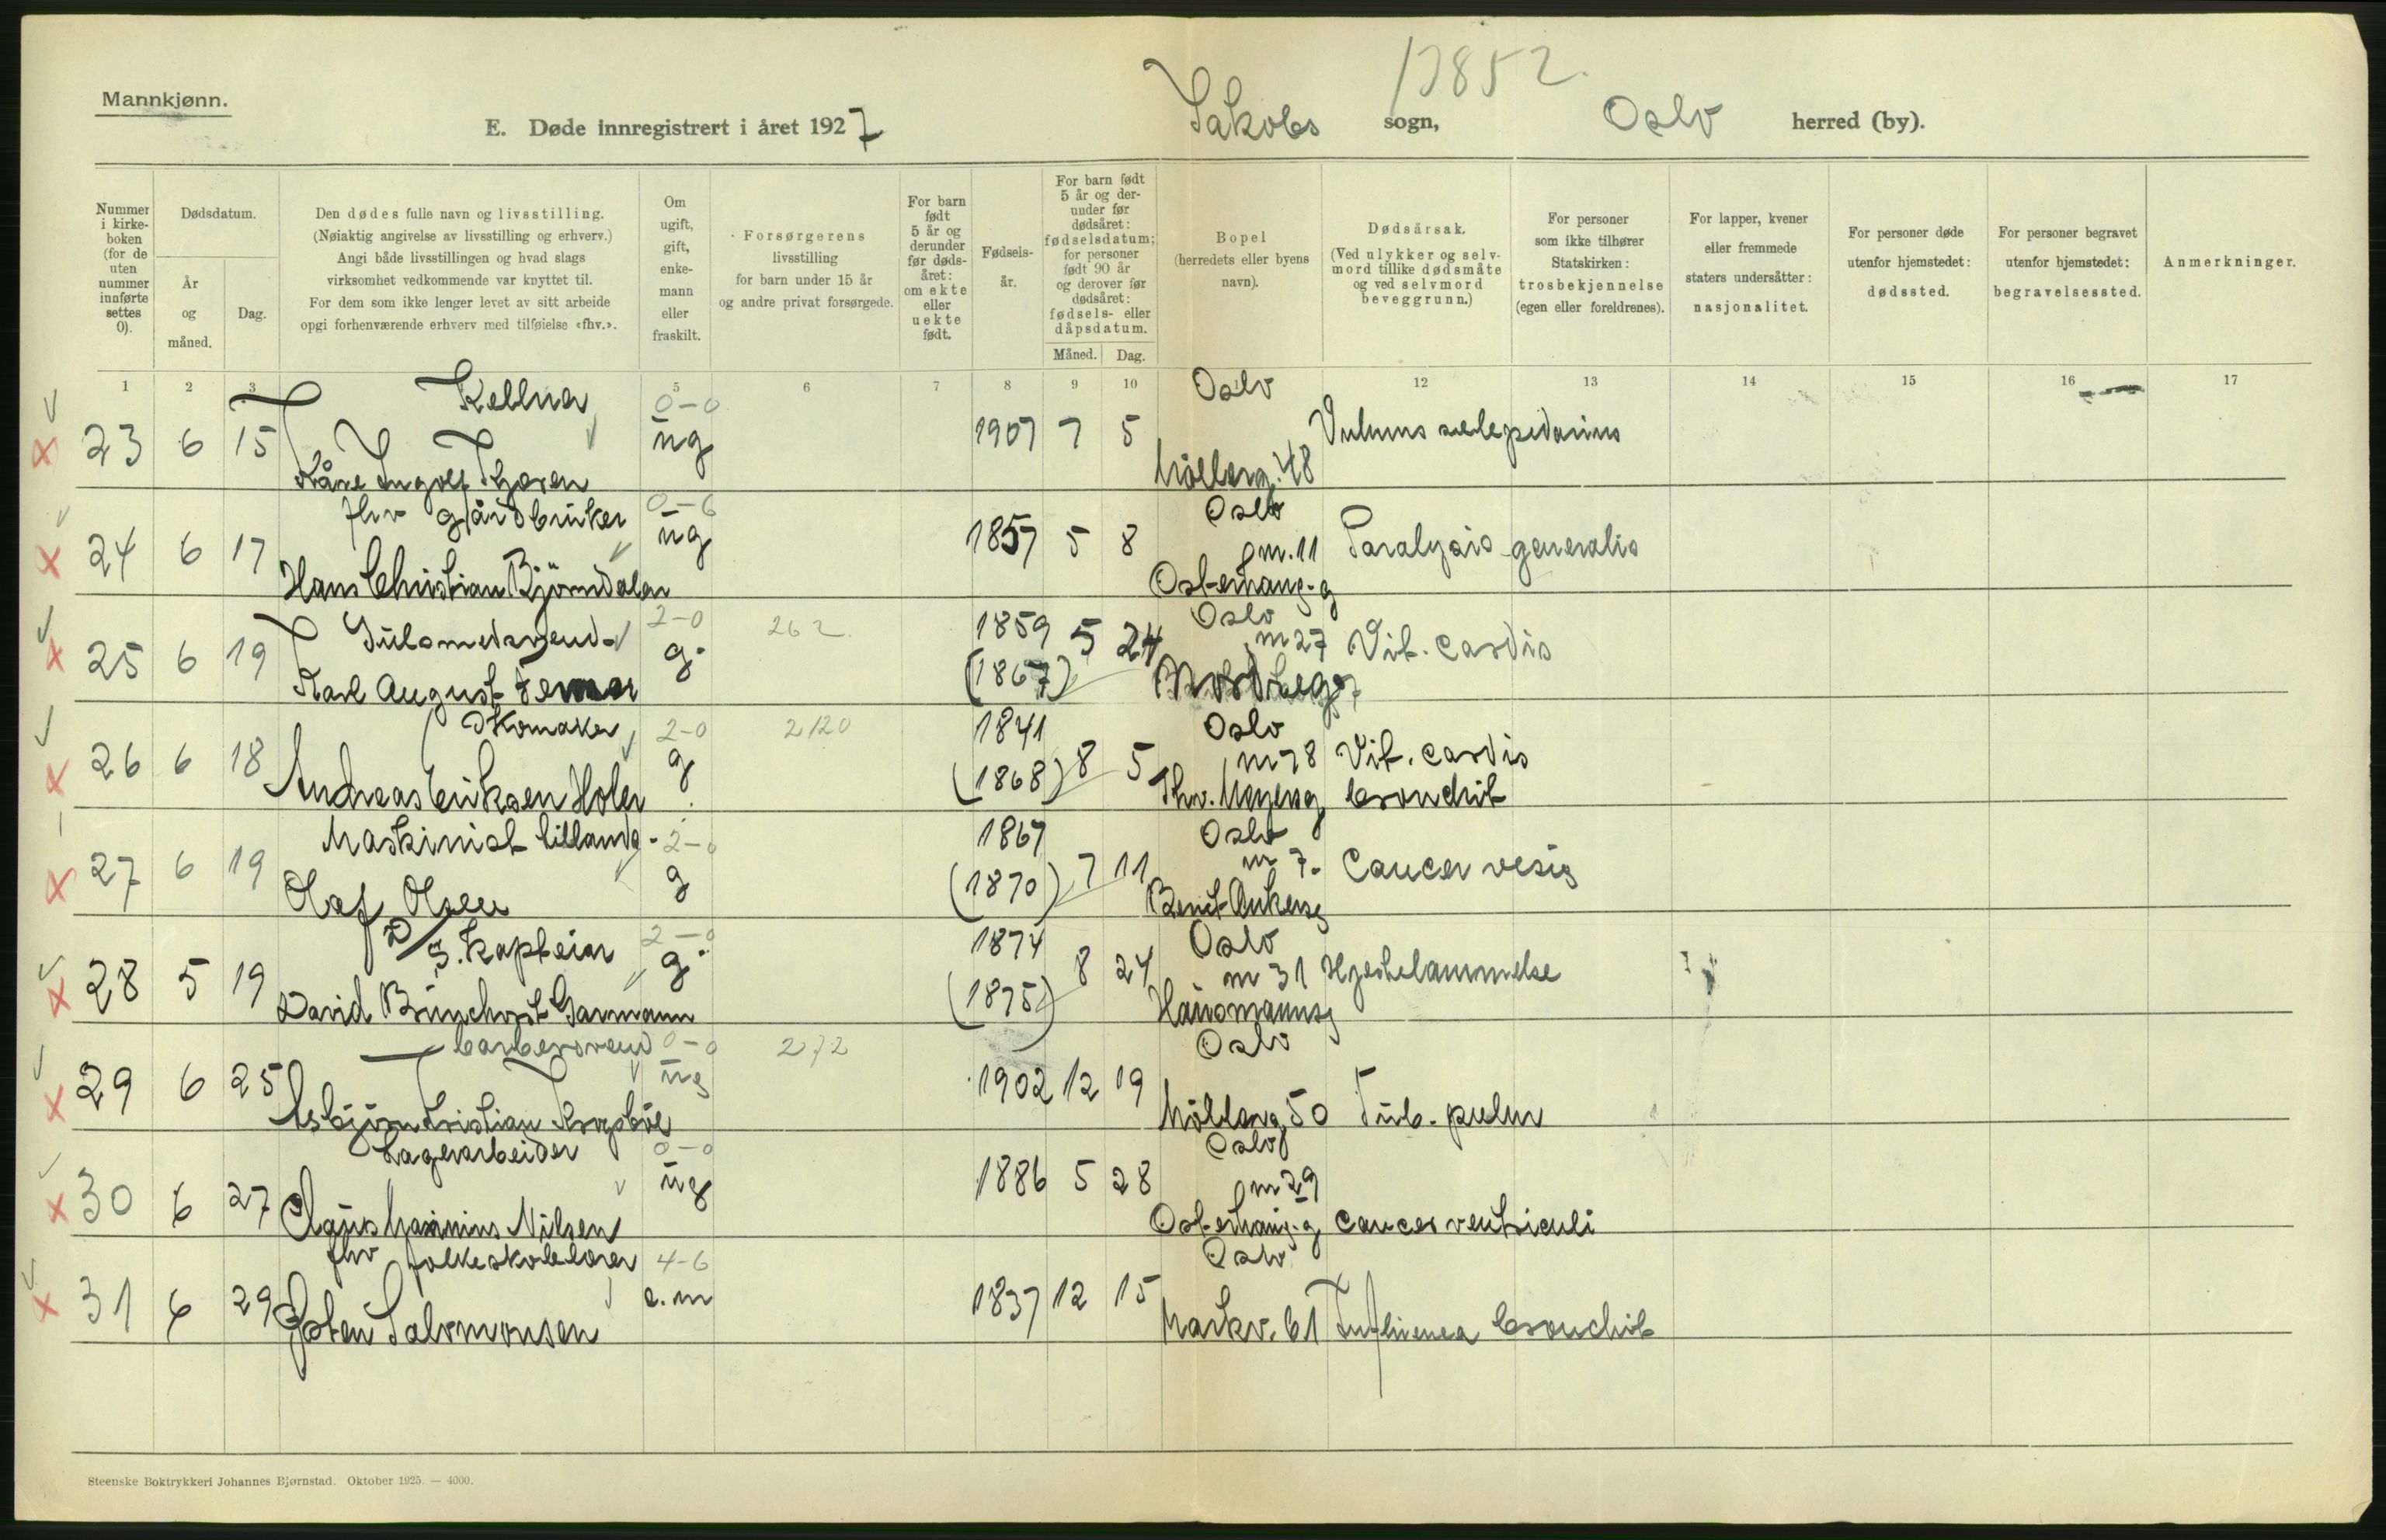 Mannkjønn.
E. Døde innregistrert i året 1927 Jakobs sogn, Oslo herred (by).
17852.
Nummer i kirkeboken (for de uten nummer innførte settes 0).
Dødsdatum.
År og måned.
Dag.
Den dødes fulle navn og livsstilling.
(Nøiaktig angivelse av livsstilling og erhverv.)
Angi både livsstillingen og hvad slags
virksomhet vedkommende var knyttet til.
For dem som ikke lenger levet av sitt arbeide
opgi forhenværende erhverv med tilføielse «fhv.».
Om ugift, gift, enkemann eller fraskilt.
Forsørgerens
livsstilling
for barn under 15 år
og andre privat forsørgede.
For barn født 5 år og derunder før dødsåret: om ekte eller uekte født.
Fødselsår.
For barn født 5 år og derunder før dødsåret: fødselsdatum; for personer født 90 år og derover før dødsåret: fødsels- eller dåpsdatum.
Måned. Dag.
Bopel
(herredets eller byens
navn).
Dødsårsak.
(Ved ulykker og selvmord tillike dødsmåte og ved selvmord beveggrunn.)
For personer
som ikke tilhører
Statskirken:
trosbekjennelse
(egen eller foreldrenes).
For lapper, kvener
eller fremmede
staters undersåtter:
nasjonalitet.
For personer døde
utenfor hjemstedet:
dødssted.
For personer begravet
utenfor hjemstedet:
begravelsessted.
Anmerkninger.
1 2 3 5 6 7 8 9 10 12 13 14 15 16 17
Kellner 0-0 Oslo
23 6 15 ug 1907 7 5
Kåre Ingolf Møllerg. 48
fhv gårdbruker 0-6 Oslo
24 6 17 ug 1857 5 8 nr. 11 Paralysis generalis
Hans Christian Bjørndalen Osterhausg.
Gulsmedsvend 2-0 262 1859 Oslo
25 6 19 g. 5 24 nr 27 Vit. cordis
Karl August (1867)
Skomaker 2-0 2120 1841 Oslo
26 6 18 g. 8 5 nr 78 Vit. cordis
Andreas Eriksen Holer (1868) Thv. Meyersg. bronchit
Maskinist 2-0 1867 Oslo
27 6 19 g 7 11 nr 7. Cancer vesic
Olaf Olsen (1870) Bernt Ankersg
D/S. kaptein 2-0 1874 Oslo
28 5 19 g. 8 24 nr 31 Hjertelammelse
David Bunchorst Garmann (1875) Hausmannsg
barbersvend 0-0 272 Oslo
29 6 25 ug 1902 12 19
Asbjørn Kristian Møllerg. 50 Tub. pulm
Lagerarbeider 0-0 Oslo
30 6 27 ug 1886 5 28 nr 29
Claus Nilsen Osterhausg. Cancer ventriculi
fhv folkeskolelærer 4-6 Oslo
31 6 29 e.m 1837 12 15
Salomonsen Markv. 61 Influenca bronchit
Steenske Boktrykkeri Johannes Bjørnstad. Oktober 1925. — 4000.